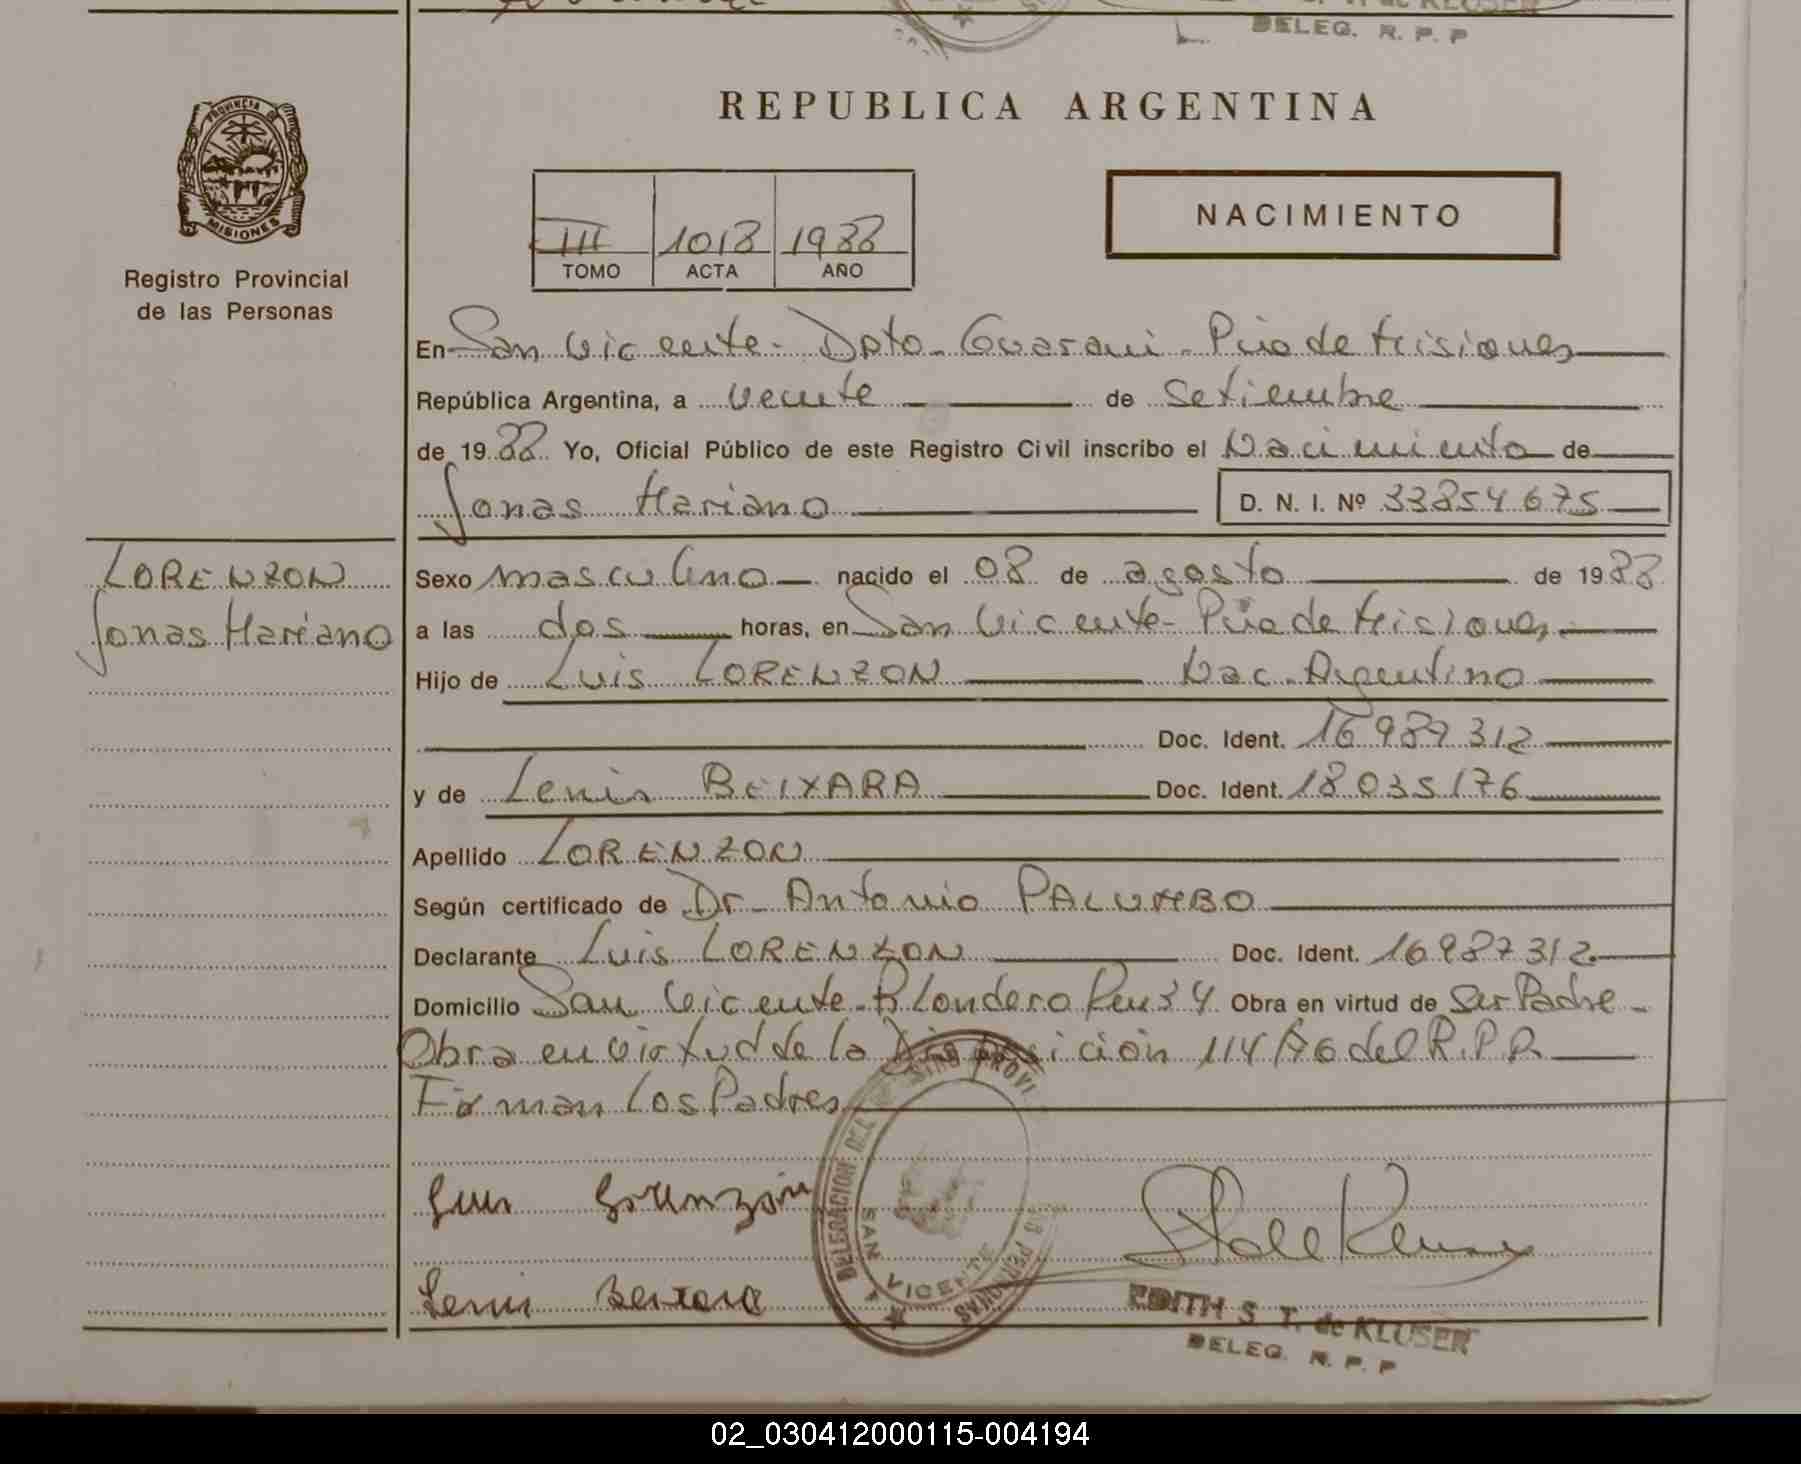 DELEG. R. P. P
REPUBLICA ARGENTINA
PROVINCIA DE
MISIONES
Registro Provincial
de las Personas
III 1018 1988
TOMO ACTA AÑO
NACIMIENTO
En San Vicente - Dpto - Guarani - Pcia de Misiones
República Argentina, a veinte de Setiembre
de 1988 Yo, Oficial Público de este Registro Civil inscribo el Nacimiento de
Jonas Mariano D. N. I. Nº 33854675
LORENZON
Jonas Mariano
Sexo masculino nacido el 08 de agosto de 1988
a las dos horas, en San Vicente - Pcia de Misiones
Hijo de Luis LORENZON Nac. Argentino
Doc. Ident. 16987312
y de Lenir BEIXARA Doc. Ident. 18035176
Apellido LORENZON
Según certificado de Dr - Antonio PALUMBO
Declarante Luis LORENZON Doc. Ident. 16987312
Domicilio San Vicente - B Londero Obra en virtud de Ser Padre -
Obra en virtud de la Disposicion 114/86 del R.P.P.
Firman los Padres
Luis Lorenzon
Lenir Beixara
DELEGACION DEL REGISTRO PROVINCIAL DE LAS PERSONAS
SAN VICENTE
EDITH S. T. de KLUSER
DELEG. R. P. P
02_030412000115-004194